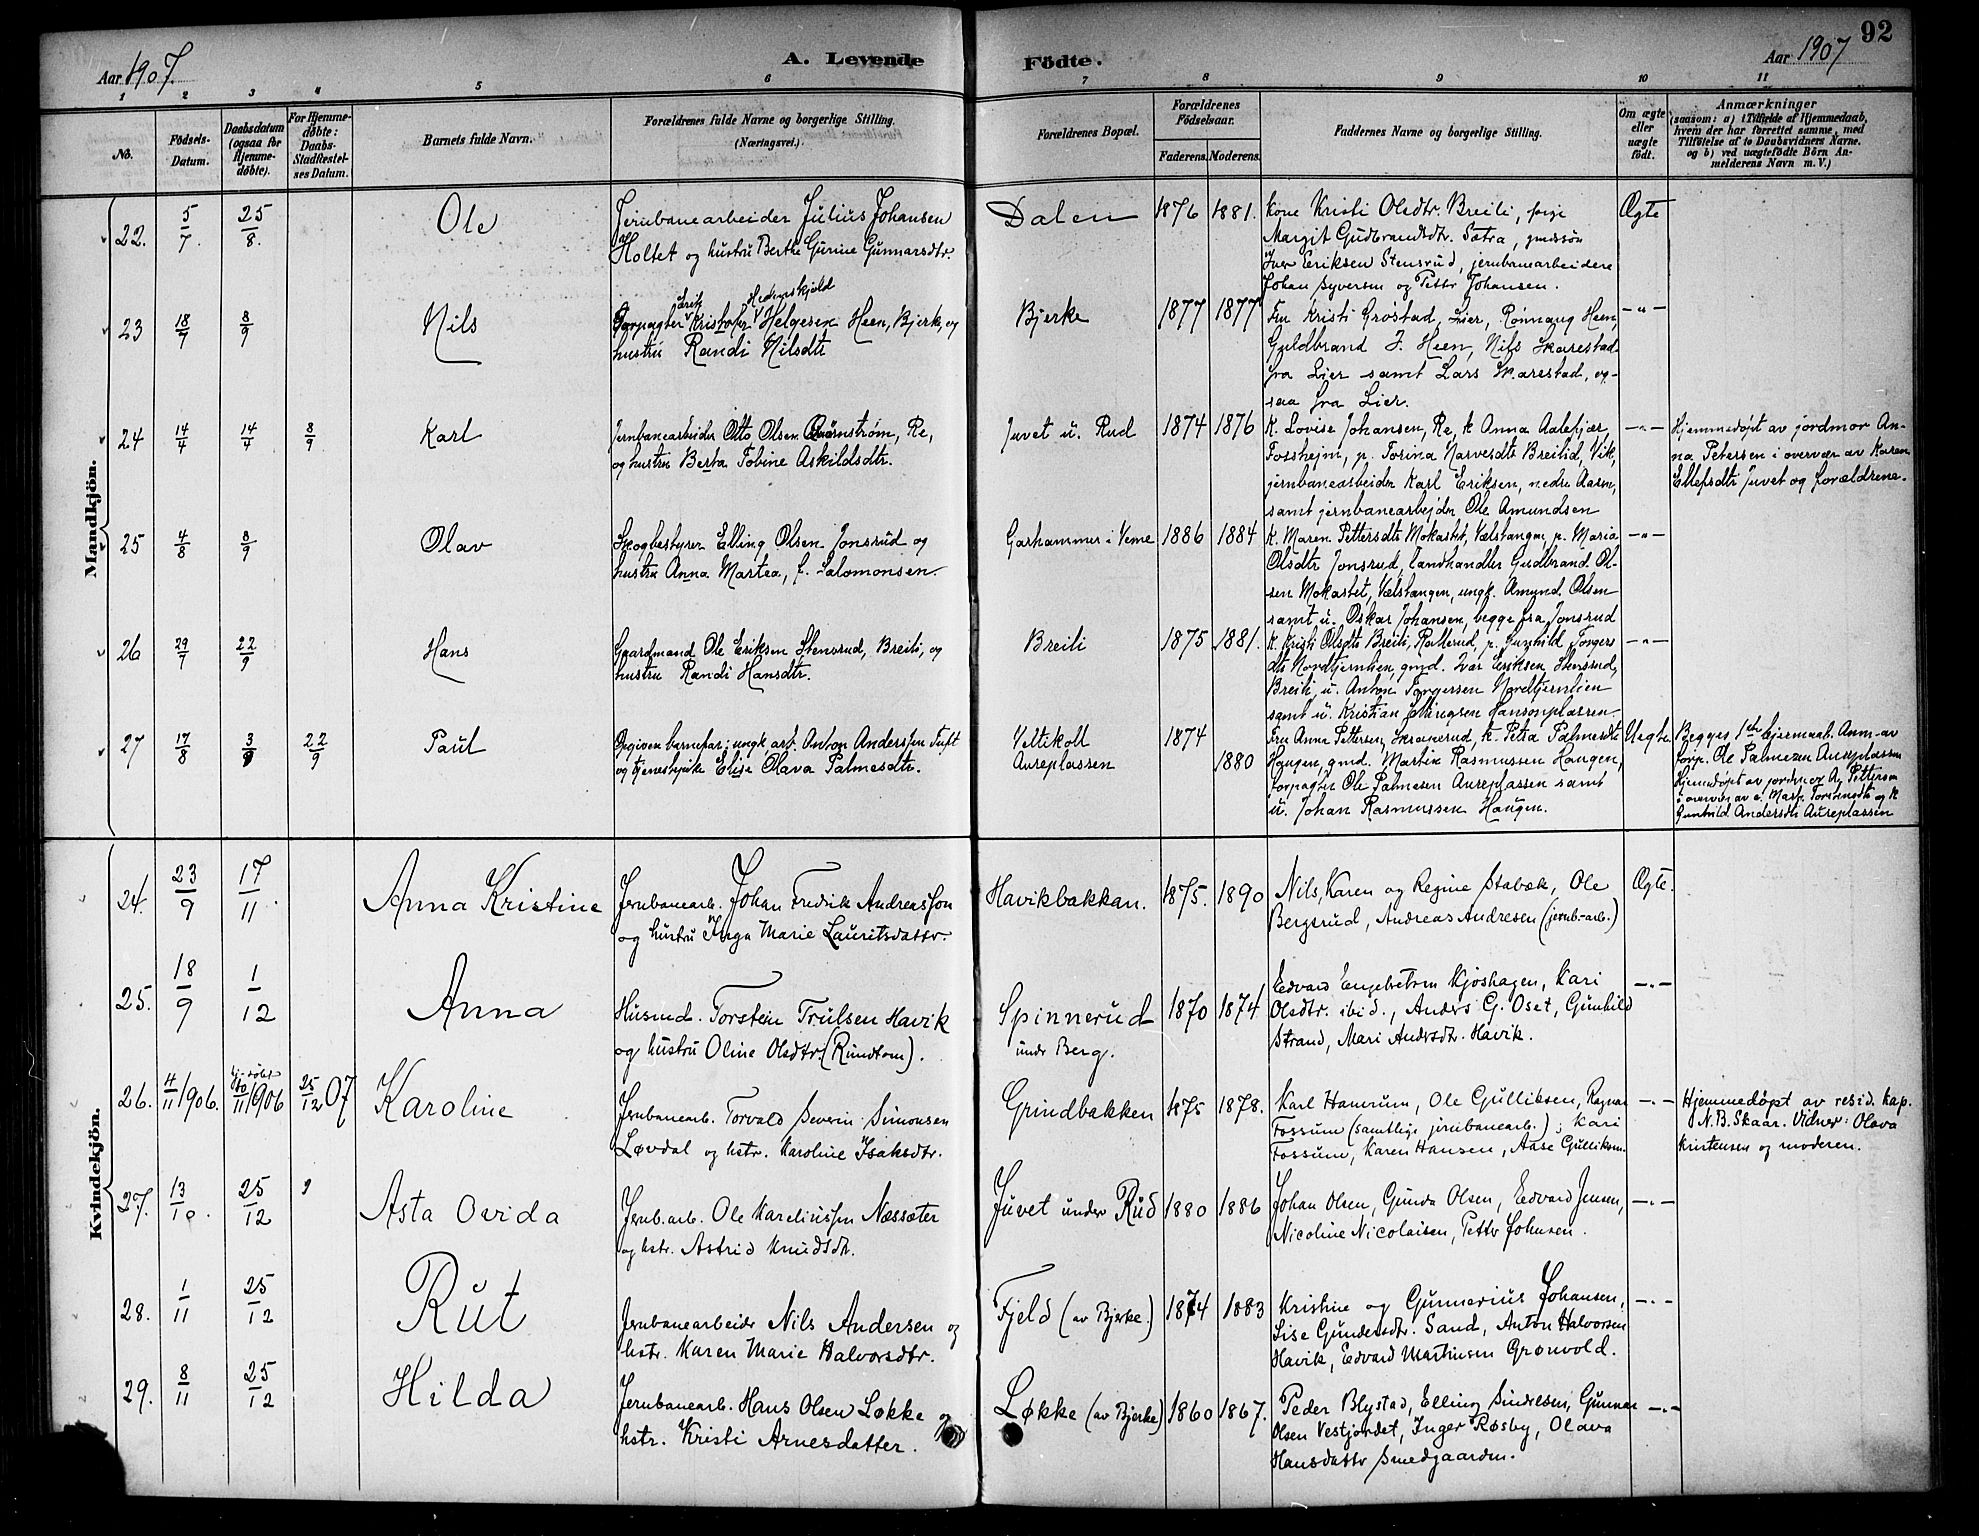 92
A. Levende Fødte.
Aar 1907.
Aar 1907
1 2 3 4 5 6 7 8 9 10 11
No.
Fødsels-Datum.
Daabsdatum (ogsaa for Hjemmedøbte).
For Hjemmedøbte: Daabs-Stadfæstelses Datum.
Barnets fulde Navn.
Forældrenes fulde Navne og borgerlige Stilling.
(Næringsvei.)
Forældrenes Bopæl.
Forældrenes Fødselsaar.
Faderens. Moderens.
Faddernes Navne og borgerlige Stilling.
Om ægte eller uægte født.
Anmærkninger
(saasom: a) i Tilfælde af Hjemmedaab,
hvem der har forrettet samme, med
Tilføielse af to Daabsvidners Navne.
og b) ved uægtefødte Børn An-
melderens Navn m. V.)
Mandkjön.
22. 5/7. 25/8. Ole
Jernbanearbeider Julius Johansen
Holtet og hustru Berthe Gurine Gunnarsdtr.
Dalen 1876 1881.
Kone Kristi Olsdtr. Breili, pige
Margit Gudbrandsdtr. Sætra, gmdssøn
Iver Eriksen Stensrud, jernbanearbeidere
Johan Syversen og Petter Johansen.
Ægte
23 18/7 8/9 Nils
Erik Hedenskjold
Forpagter Kristofer Helgesen Heen, Bjerke, og
hustru Randi Nilsdtr
Bjerke 1877 1877
Fru Kristi Grøstad, Lier, Rønnaug Heen,
Guldbrand J. Heen, Nils Skarestad
fra Lier samt Lars Skarestad, og-
saa fra Lier.
—"—
24 14/4 14/4 8/9 Karl
Jernbanearbeider Otto Olsen Quarnstrøm, Re,
og hustru Berta Tobine Askildsdtr.
Juvet u. Rud 1874 1876
K. Lovise Johansen, Re, k Anna Aalekjær
Fossheim, p. Torina Narvesdtr Breilid, Vik,
jernbanearbeider Karl Eriksen, nedre Aasen,
samt jernbanearbejder Ole Amundsen
—"—
Hjemmedøpt av jordmor An-
na Petersen i overvær av Karen
Ellefsdtr Juvet og forældrene.
25 4/8 8/9 Olav
Skogbestyrer Elling Olsen Jonsrud og
hustru Anna Martea, f. Salomonsen.
Garhammer i Veme 1886 1884
K. Maren Pettersdtr Mokastet, Vælstangen, p. Maria
Olsdtr Jonsrud, landhandler Gudbrand Ol-
sen Mokastet, Vælstangen, ungk. Amund Olsen
samt u. Oskar Johansen, begge fra Jonsrud
—"—
26 29/7 22/9 Hans
Gaardmand Ole Eriksen Stensrud, Breili, og
hustru Randi Hansdtr.
Breili 1875 1881.
K. Kristi Olsdtr Breili, p. Gunhild Torgers
dtr Nordtjernlien, gmd. Ivar Eriksen Stensrud,
Breili, u. Anton Torgersen Nordtjernlien
samt u. Kristian Hansonplassen.
—"—
27 17/8 3/9 22/9 Paul
Opgiven barnefar: ungk. arb. Anton Anderssen Tuft
og tjenestepike Elise Olava Palmesdtr.
Veltikolt 1874
Aureplassen 1880
Fru Anna Pettersen, k. Petra Palmesdtr
Haugen, gmd. Martin Rasmussen Haugen,
forpagter Ole Palmesen Aureplassen samt
u. Johan Rasmussen Haugen.
Uegte
Begges 1ste leiermaal. Anm. av
forp. Ole Palmesen Aureplassen
Hjemmedøpt av jordmor A. Pettersen
i overvær av e. Mart. Torstensdtr og k
Gunhild Andersdtr Aureplassen
Kvindekjön.
24. 23/9 17/11. Anna Kristine
Jernbanearb. Johan Fredrik Andreassen
og hustru Inga Marie Lauritsdatter.
Havikbakkan. 1875. 1890
Nils, Karen og Regine Stabæk, Ole
Bergsrud, Andreas Andresen (jernb-arb.)
Ægte.
25. 18/9 1/12 Anna
Husmd. Torstein Trulsen Havik
og hustru Oline Olsdtr (Rundtom).
Spinnerud
undr Berg. 1870 1874
Edvard Engebretsen Kjøshagen, Kari
Olsdtr. ibid., Anders G. Oset, Gunhild
Strand, Mari Andersdtr. Havik.
—"—
26. 4/11 1906. hj-døbt 10/11 1906 25/12 07 Karoline
Jernbanearb. Torvald Severin Simonsen
Løvdal og hstr. Karoline Isaksdtr.
Grindbakken 1875 1878.
Karl Hamrum, Ole Gulliksen, Ragnar
Fossum (samtlige jernbanearb.); Kari
Fossum, Karen Hansen, Aase Gulliksen.
—"—
Hjemmedøpt av resid. kap.
N. B. Skaar. Vidner: Olava
Kristensen og moderen.
27. 13/10. 25/12 Asta Ovida
Jernb.arb. Ole Kareliussen Næssæter
og hstr. Astrid Knudsdtr.
Juvet under Rud 1880 1886
Johan Olsen, Gunda Olsen, Edvard Jensen,
Nicoline Nicolaisen, Petter Johnsen.
—"—
28. 1/11 25/12 Rut
Jernbanearbeidr Nils Andersen og
hstr. Karen Marie Halvorsdtr.
Fjeld (av Bjerke.) 1874 1883
Kristine og Gunnerius Johansen,
Lise Gundersdtr. Sand, Anton Halvorsen
Havik, Edvard Martinsen Grønvold.
—"—
29. 8/11 25/12 Hilda
Jernbanearb. Hans Olsen Løkke og
hstr. Kristi Arnesdatter.
Løkke (av Bjerke) 1860 1867.
Peder Blystad, Elling Sindresen, Gunnar
Olsen Vestjordet, Inger Røsby, Olava
Hansdattr Smedgaarden.
—"—